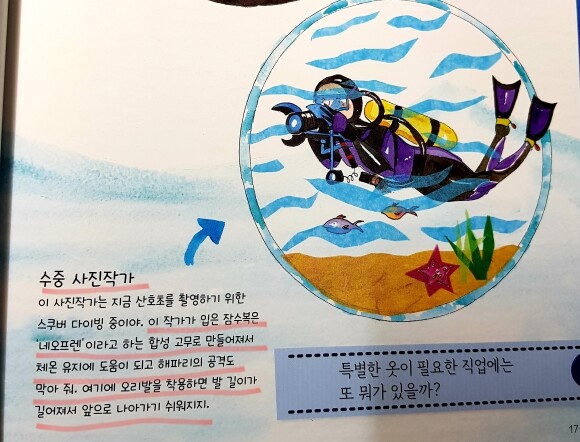 수중 사진작가
이 사진작가는 지금 산호초를 촬영하기 위한
스쿠버 다이빙 중이야. 이 작가가 입은 잠수복은
'네오프렌'이라고 하는 합성 고무로 만들어져서
체온 유지에 도움이 되고 해파리의 공격도
막아 줘. 여기에 오리발을 착용하면 발 길이가
길어져서 앞으로 나아가기 쉬워지지.
특별한 옷이 필요한 직업에는
또 뭐가 있을까?
17